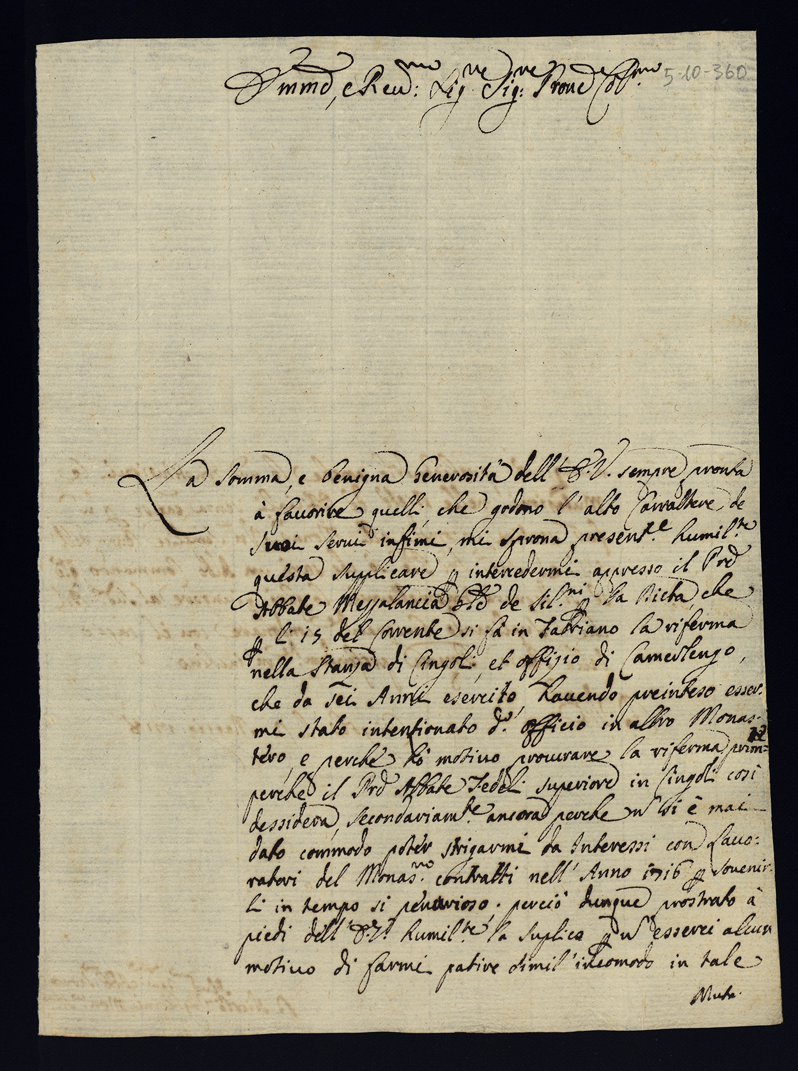 5-10-360
e Rev:mo Sig:re Sig:re Prone Col:mo
La somma, e benigna Generosità dell' S. V. sempre pronta
à favorire quelli che godono l' alto Carrattere de
suoi servi infimi, mi sprona present.e humil.te
questa suplicare p intercedermi appresso il Prd
Abbate de Sil.ni p la Dieta che
p li 15 del Corrente si fà in Fabriano la riferma
nella Stanza di Cingoli, et offizio di Camerlengo,
che da sei Anni esercito, havendo preinteso esser-
mi stato intentionato d.o officio in altro Monas-
tero, e perche hò motivo procurare la riferma prim-
perche il Prd Abbate Fedeli superiore in Cingoli così
dessidera, secondariam.te ancora perche n si è mai
dato commodo poter strigarmi da Interessi con Lavo:
ratori del Monas.ro contratti nell' Anno 1716 p sovenir-
li in tempo si penurioso. perciò dunque prostrato à
piedi dell' S. V. humil.te la suplica p n esserci alcun
motivo di farmi patire simil' incomodo in tale
Muta.